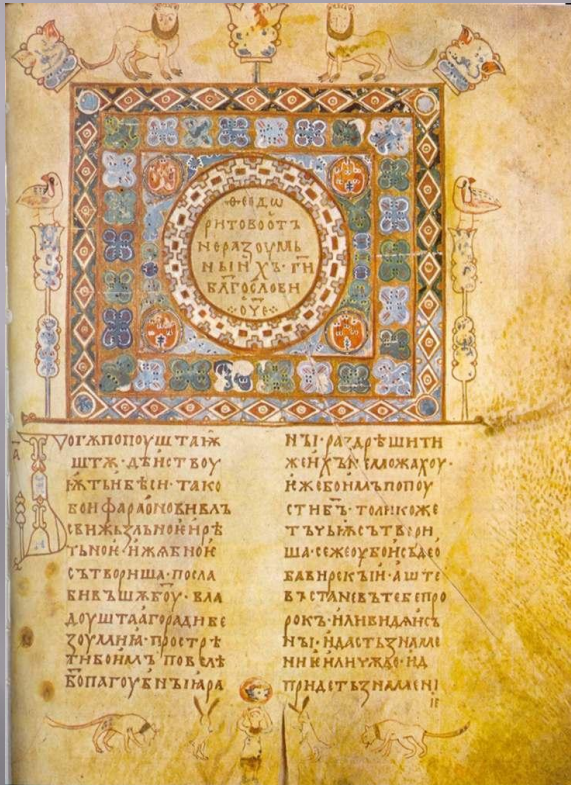 ѲЕѠДѠ
РИТОВО ОТЪ
НЕРАЗОУМЬ
НЫИХЪ· Г҃И
БЛ҃АГОСЛОВИ
ОЧ҃Е
БОГѪ ПОПОУШТАѬ
ШТѪ· ДѢИСТВОУ
ѬТЬ И БѢСИ· ТАКО
БО И ФАРАОНОВИ ВЛЪ
СВИ ЖЬЗЛЬНОЮ И РѢ
ЧЬНОЮ· И ЖАБНОЮ
СЪТВОРИША· ПОСЛА
ВЪШЮ БОУ· ВЛА
ДОУШТААГО РАДИ БЕ
ЗОУМИꙖ· ПРОСТРѢ
ТИ БО ИМЪ ПОВЕЛѢ
БО ПАГОУБЫ НА РА
НЫ· РАЗДРѢШИТИ
ЖЕ ИХЪ НЕ МОЖАХОУ·
ИЖЕ БО ИМЪ ПОПОУ
СТИ Б҃Ъ· ТОЛИКО ЖЕ
ТЪЧЬѬ СЪТВОРИ
ША· СЕ ЖЕ ОУБО И СЬДЕ О
БАВИ РЕКЫИ· АШТЕ
ВЪСТАНЕ ВЪ ТЕБЕ ПРО
РОКЪ· ИЛИ ВИДѦИ СЪ
НЫ· И ДАСТЬ ЗНАМЕ
НИЕ ИЛИ ЧУЖДО· И Д
ПРИДЕТЬ ЗНАМЕНІ
ІЕ